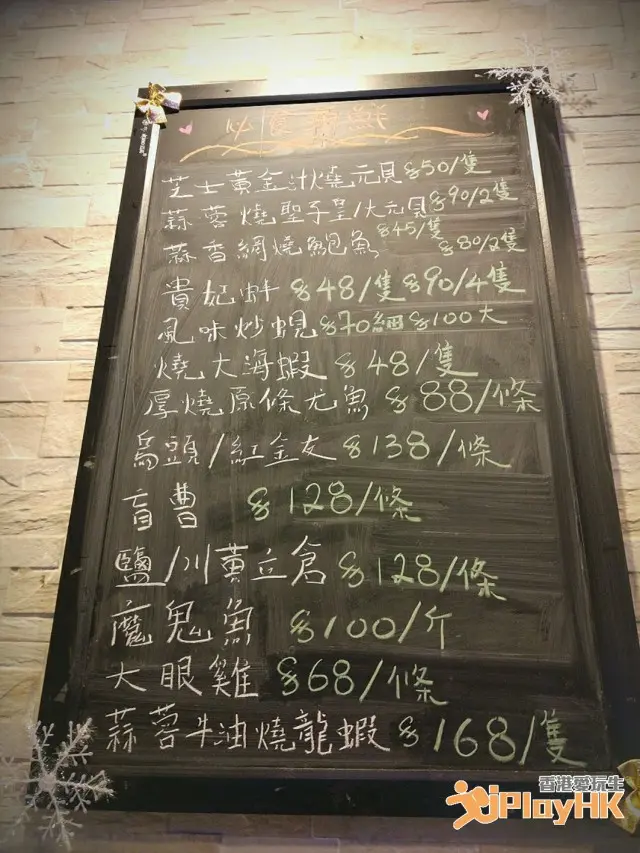 必食海鮮
芝士黃金汁燒元貝 $50/隻
蒜蓉燒聖子呈/大元貝 $90/2隻
蒜香鍋燒鮑魚 $45/隻 $80/2隻
貴妃蚌 $48/隻 $90/4隻
風味炒蜆 $70細 $100大
燒大海蝦 $48/隻
厚燒原條尤魚 $88/條
烏頭/紅金友 $138/條
盲曹 $128/條
鹽/川黃立倉 $128/條
魔鬼魚 $100/斤
大眼雞 $68/條
蒜蓉牛油燒龍蝦 $168/隻
香港愛玩生
iPlayHK